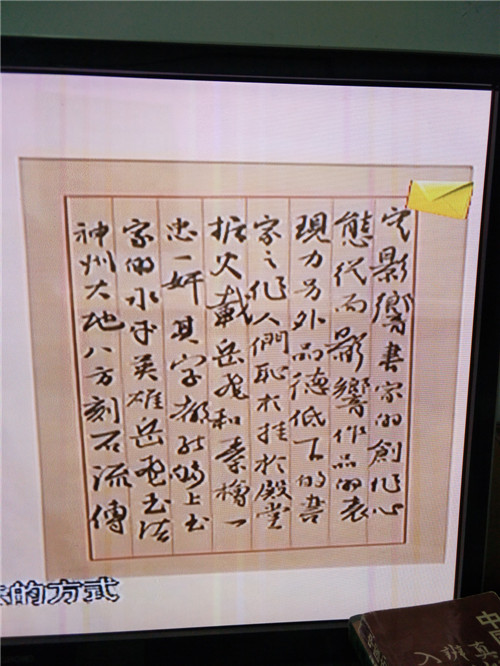 定影響書家的創作心
態從而影響作品的表
現力另外品德低下的書
家之作人們恥於挂於殿堂
据史載岳飛和秦檜一
忠一奸其字都能夠上书
家的水平英雄岳飛书法
神州大地八方刻石流傳
的方式
中
入辨真